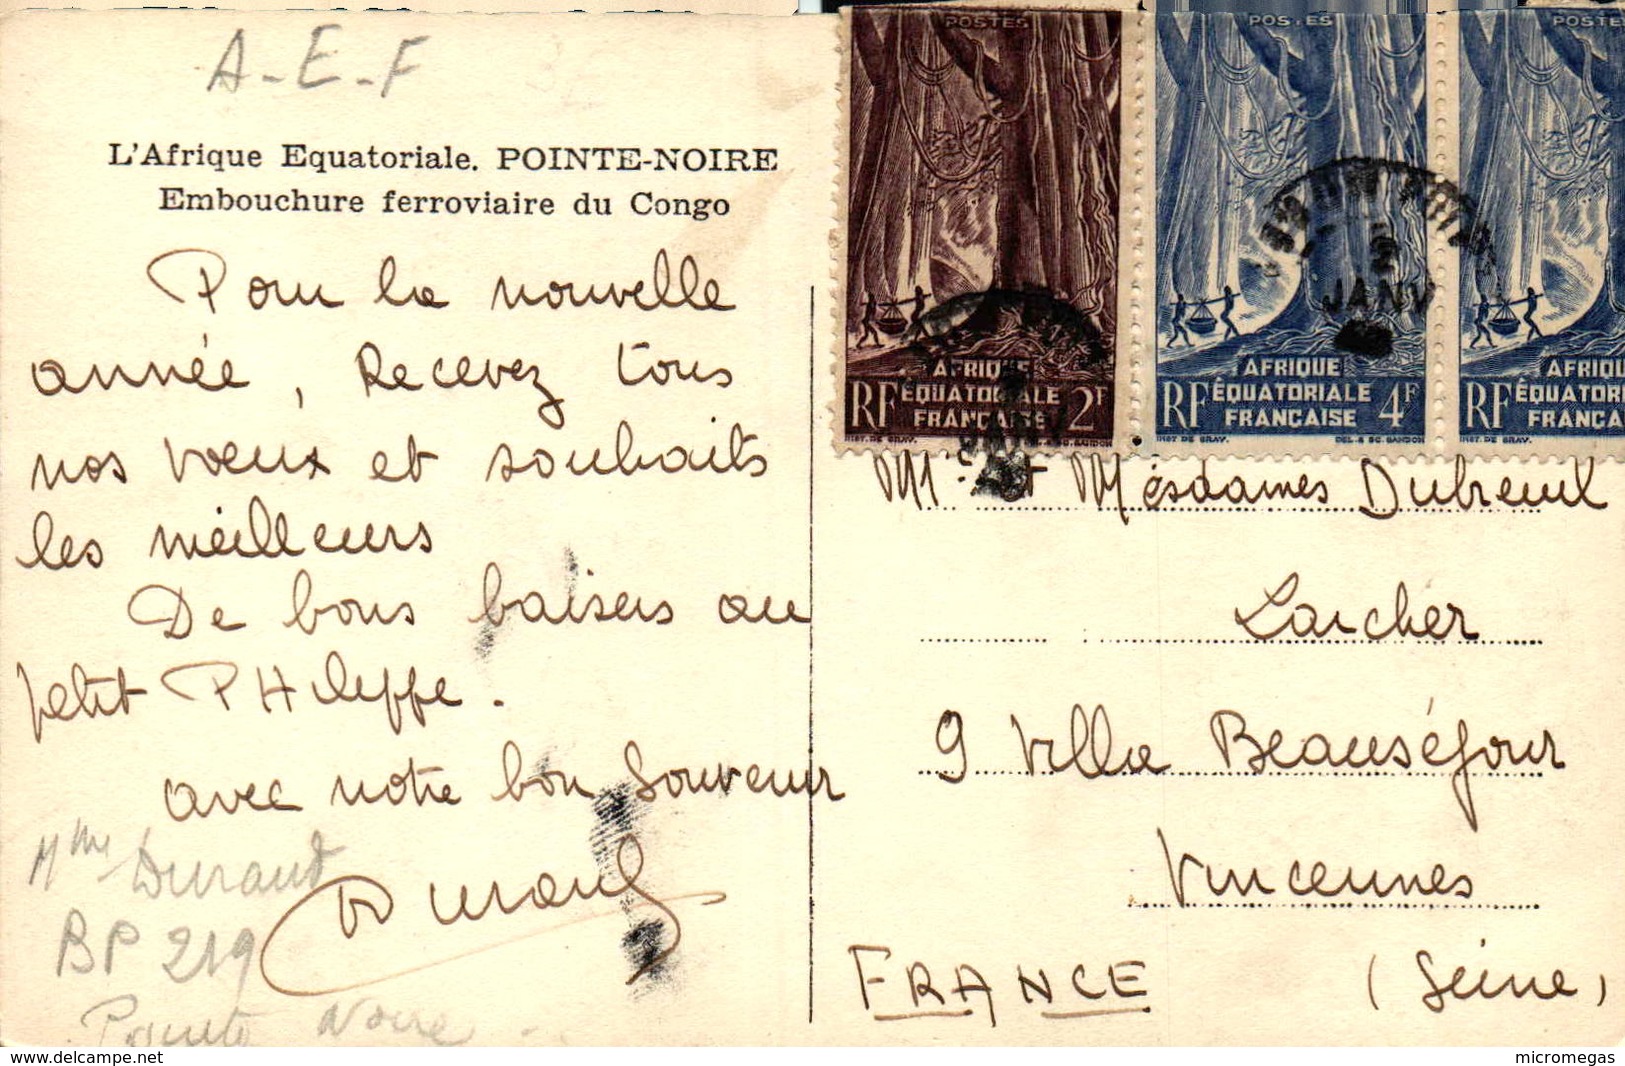 A-E-F
L'Afrique Equatoriale. POINTE-NOIRE
Embouchure ferroviaire du Congo
Pour la nouvelle
année, Recevez tous
nos voeux et souhaits
les meilleurs
De bons baisers au
petit PHilippe.
avec notre bon souvenir
Durand
Mme Durand
BP 219
Pointe Noire
POSTES
AFRIQUE
RF ÉQUATORIALE 2F
FRANÇAISE
INST. DE GRAV.
POSTES
AFRIQUE
RF ÉQUATORIALE 4F
FRANÇAISE
INST. DE GRAV. DEL. & SC. BANDON
POSTE
AFRIQU
RF ÉQUATOR
FRANÇA
INST. DE GRAV.
JANV
Mr et Mesdames Dubreuil
Larcher
9 Villa Beauséjour
Vincennes
(Seine)
FRANCE
www.delcampe.net
micromegas